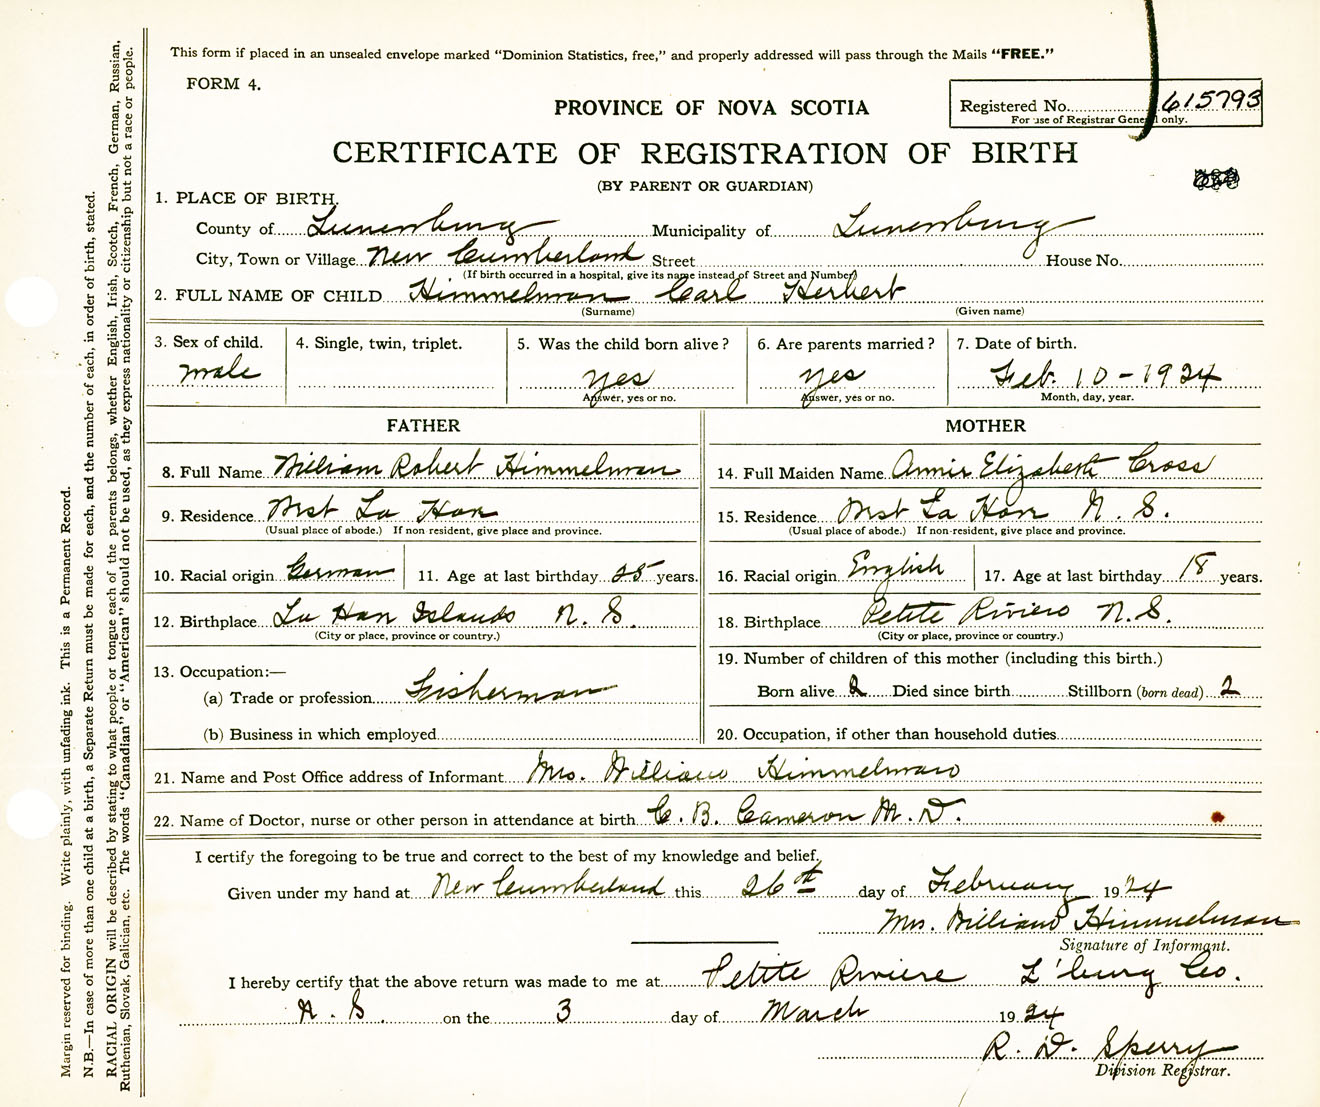 This form if placed in an unsealed envelope marked "Dominion Statistics, free," and properly addressed will pass through the Mails "FREE."
FORM 4.
Registered No. 615793
For use of Registrar General only.
PROVINCE OF NOVA SCOTIA
CERTIFICATE OF REGISTRATION OF BIRTH
(BY PARENT OR GUARDIAN)
1. PLACE OF BIRTH.
County of Lunenburg Municipality of Lunenburg
City, Town or Village New Cumberland Street House No.
(If birth occurred in a hospital, give its name instead of Street and Number)
2. FULL NAME OF CHILD Himmelman Carl Herbert
(Surname) (Given name)
3. Sex of child. 4. Single, twin, triplet. 5. Was the child born alive? 6. Are parents married? 7. Date of birth.
male yes yes Feb. 10-1924
Answer, yes or no. Answer, yes or no. Month, day, year.
FATHER
8. Full Name William Robert Himmelman
9. Residence West La Have
(Usual place of abode.) If non resident, give place and province.
10. Racial origin German 11. Age at last birthday 25 years.
12. Birthplace La Have Islands N. S.
(City or place, province or country.)
13. Occupation:—
(a) Trade or profession Fisherman
(b) Business in which employed
MOTHER
14. Full Maiden Name Annie Elizabeth Cross
15. Residence West La Have N. S.
(Usual place of abode.) If non-resident, give place and province.
16. Racial origin English 17. Age at last birthday 18 years.
18. Birthplace Petite Riviere N.S.
(City or place, province or country.)
19. Number of children of this mother (including this birth.)
Born alive 2 Died since birth Stillborn (born dead) 2
20. Occupation, if other than household duties
21. Name and Post Office address of Informant Mrs. William Himmelman
22. Name of Doctor, nurse or other person in attendance at birth C. B. Cameron M. D.
I certify the foregoing to be true and correct to the best of my knowledge and belief,
Given under my hand at New Cumberland this 26th day of February 1924
Mrs. William Himmelman
Signature of Informant.
I hereby certify that the above return was made to me at Petite Riviere L'burg Co.
N. S. on the 3 day of March 1924
R. D. Sperry
Division Registrar.
Margin reserved for binding. Write plainly, with unfading ink. This is a Permanent Record.
N.B.—In case of more than one child at a birth, a Separate Return must be made for each, and the number of each, in order of birth, stated.
RACIAL ORIGIN will be described by stating to what people or tongue each of the parents belongs, whether English, Irish, Scotch, French, German, Russian,
Ruthenian, Slovak, Galician, etc. The words "Canadian" or "American" should not be used, as they express nationality or citizenship but not a race or people.